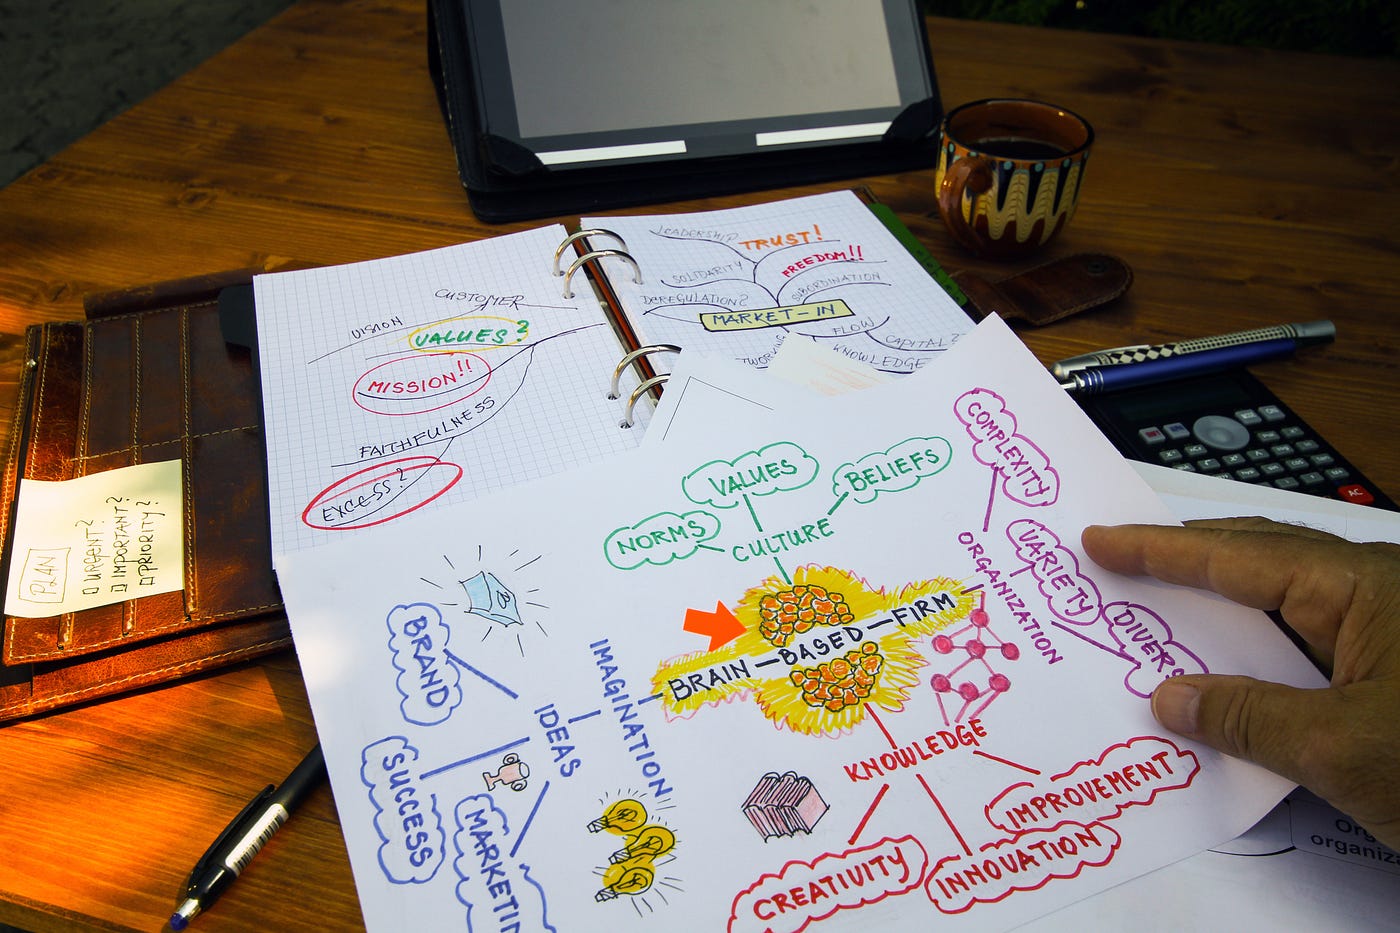 LEADERSHIP
TRUST!
FREEDOM!!
SOLIDARITY
SUBORDINATION
DEREGULATION?
MARKET-IN
FLOW
CAPITAL?
KNOWLEDGE
TWORKING
CUSTOMER
VISION
VALUES?
MISSION!!
FAITHFULNESS
EXCESS?
PLAN
URGENT?
IMPORTANT?
PRIORITY?
VALUES
BELIEFS
NORMS
CULTURE
COMPLEXITY
ORGANIZATION
VARIETY
DIVERS
BRAIN-BASED-FIRM
IMAGINATION
IDEAS
BRAND
SUCCESS
MARKETIN
KNOWLEDGE
CREATIVITY
INNOVATION
IMPROVEMENT
AC
Org
organiza